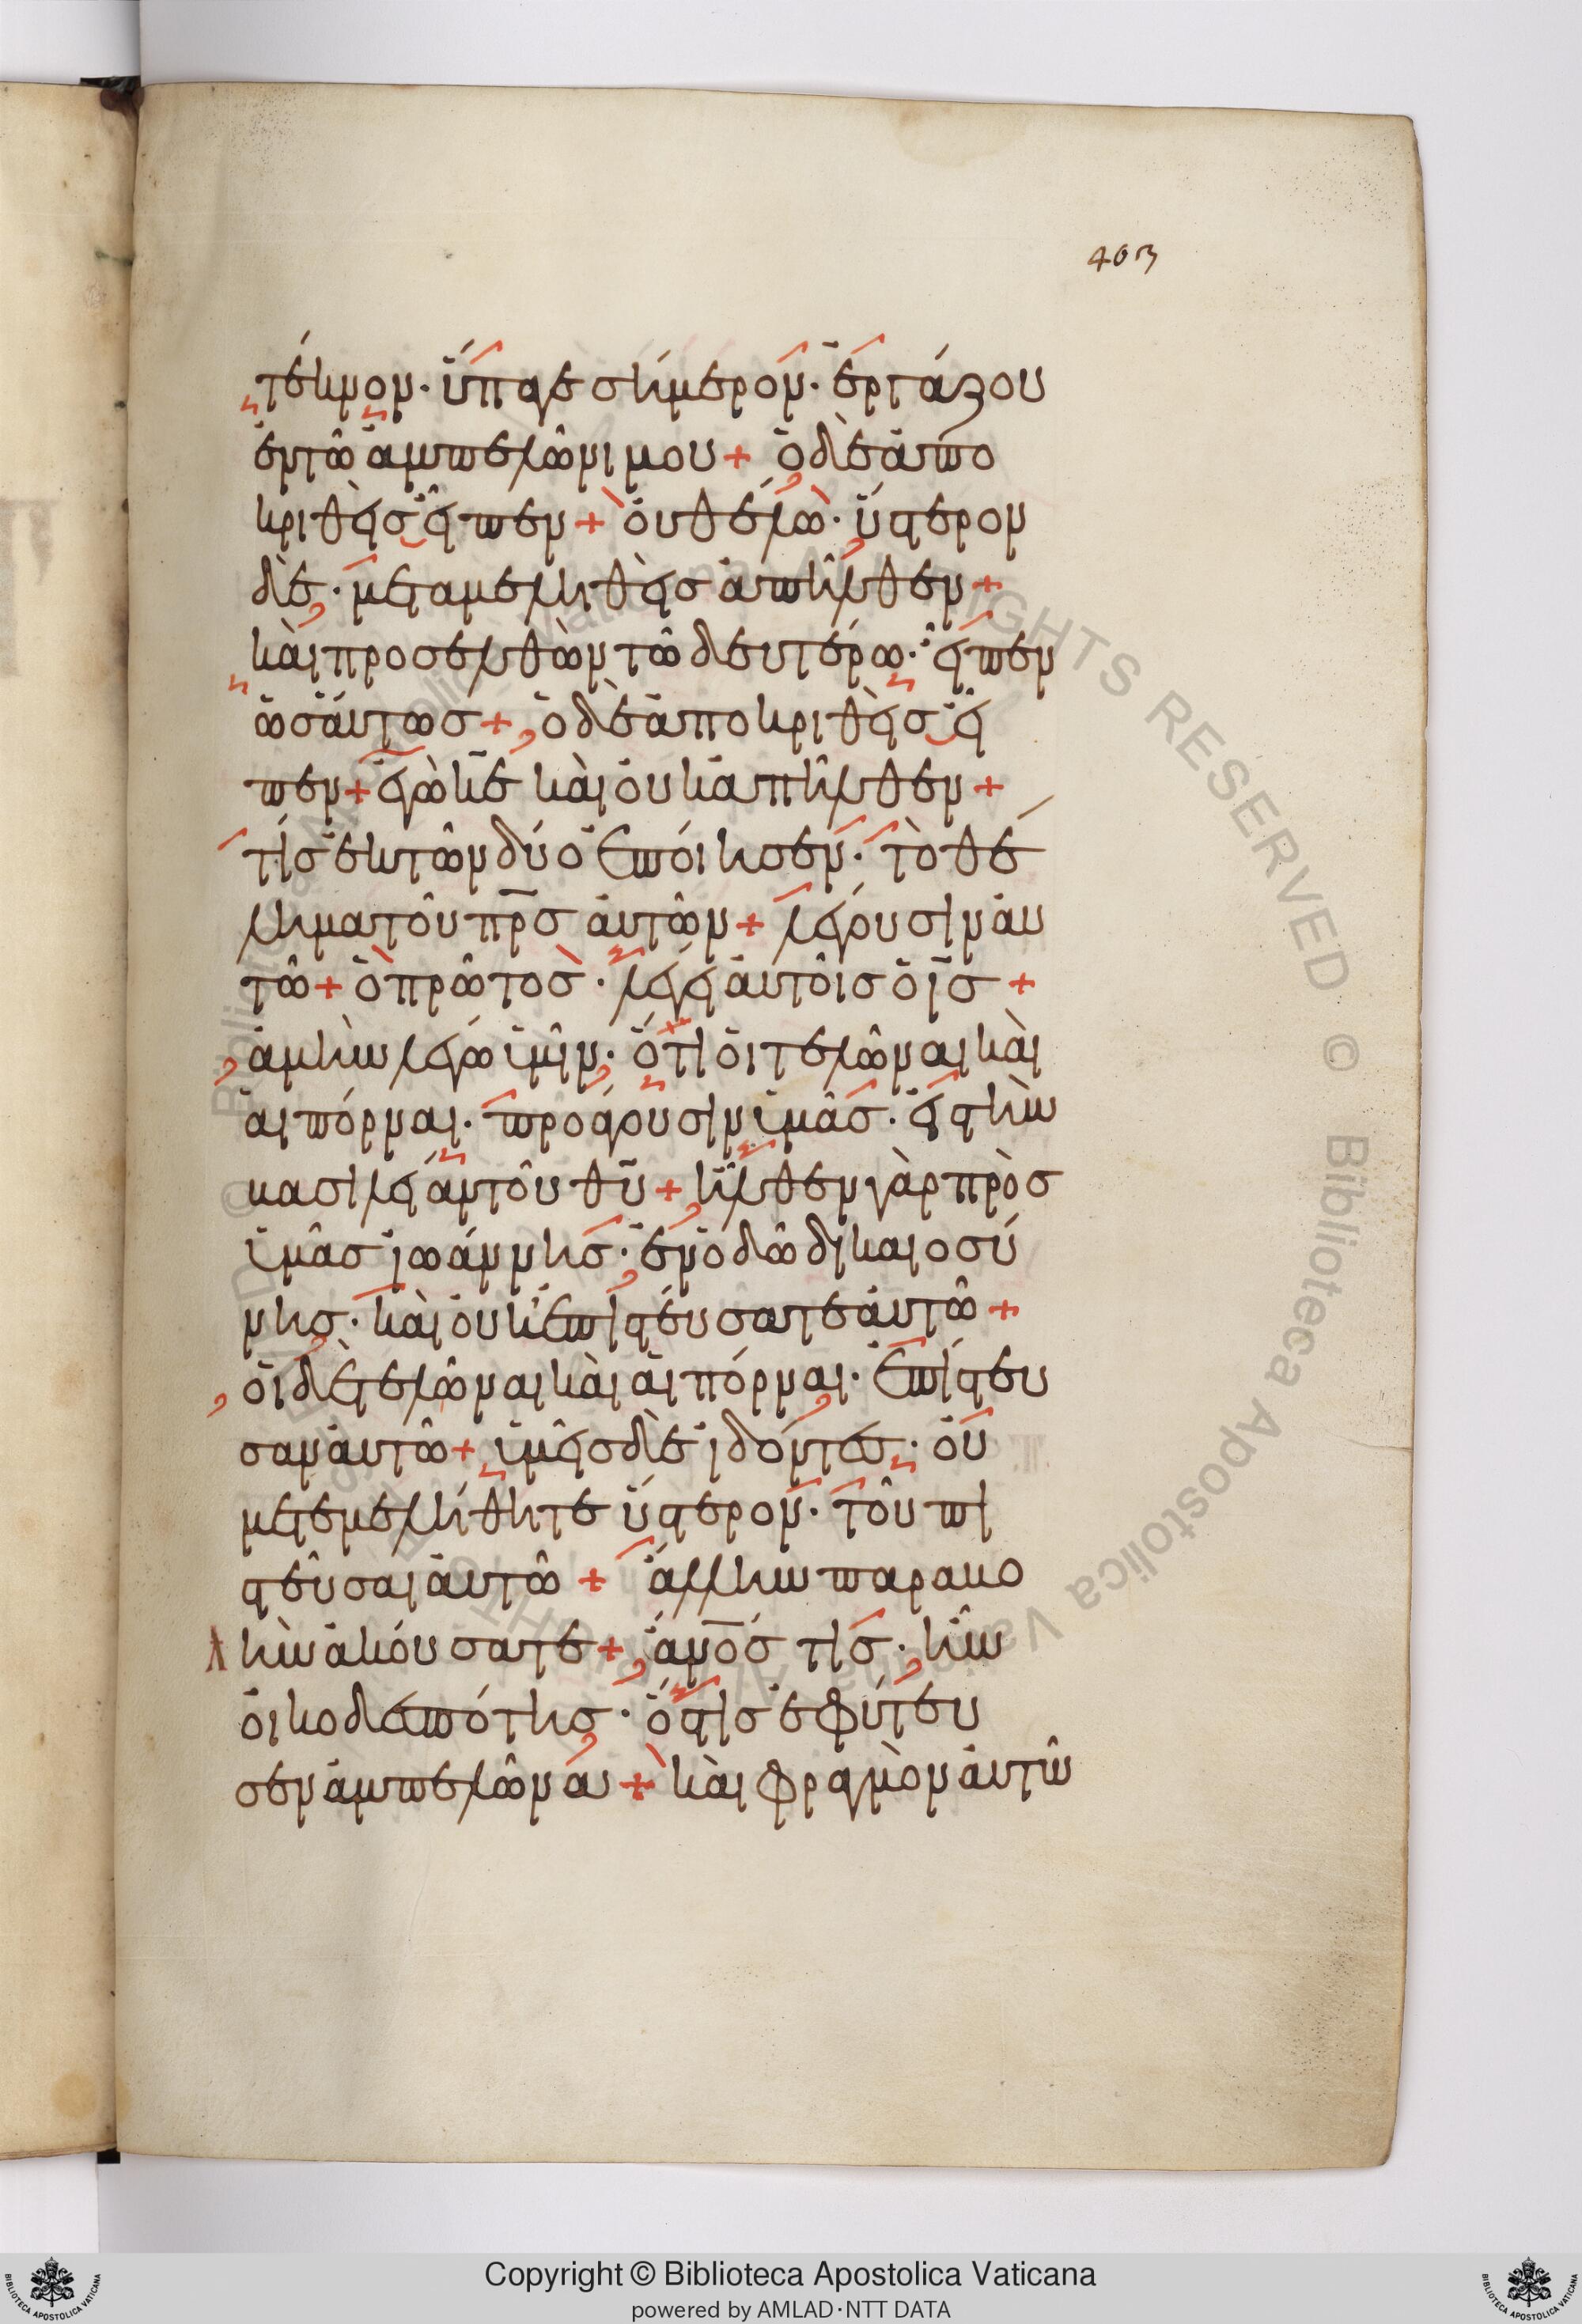 403
τέκνον· ὕπαγε σήμερον· ἐργάζου
ἐν τῶ ἀμπελῶνι μου + ὁ δὲ ἀπο
κριθεὶς εἶπεν + οὐ θέλω· ὕστερον
δὲ· μεταμεληθεὶς ἀπῆλθεν +
καὶ προσελθὼν τῶ δευτέρω· εἶπεν
ὡσάυτως + ὁ δὲ ἀποκριθεὶς εἶ
πεν + ἐγὼ κ̅ε̅ καὶ οὐκ ἀπῆλθεν +
τίς ἐκ τῶν δύο ἐποίησεν· τὸ θέ
λημα τοῦ π̅ρ̅ς̅ αὐτῶν + λέγουσιν αὐ
τῶ + ὁ πρῶτος· λέγει αὐτοῖς ὁ ι̅ς̅ +
ἀμὴν λέγω ὑμῖν· ὅτι οἱ τελῶναι καὶ
αἱ πόρναι· προάγουσιν ὑμᾶς· εἰς τὴν
βασιλείαν τοῦ θ̅υ̅ + ἦλθεν γὰρ πρὸς
ὑμᾶς ἰωάννης· ἐν ὁδῶ δικαιοσύ
νης· καὶ οὐκ ἐπιστεύσατε αὐτῶ +
οἱ δὲ τελῶναι καὶ αἱ πόρναι· ἐπίστευ
σαν αὐτῶ + ὑμεῖς δὲ ἰδόντες· οὐ
μετεμελήθητε ὕστερον· τοῦ πι
στεῦσαι αὐτῶ + ἄλλην παραβο
λὴν ἀκούσατε + ἄ̅ν̅ο̅ς̅ τίς· ἦν
οἰκοδεσπότης· ὅστις ἐφύτευ
σεν ἀμπελῶνα + καὶ φραγμὸν αὐτῶ
Copyright © Biblioteca Apostolica Vaticana
powered by AMLAD·NTT DATA